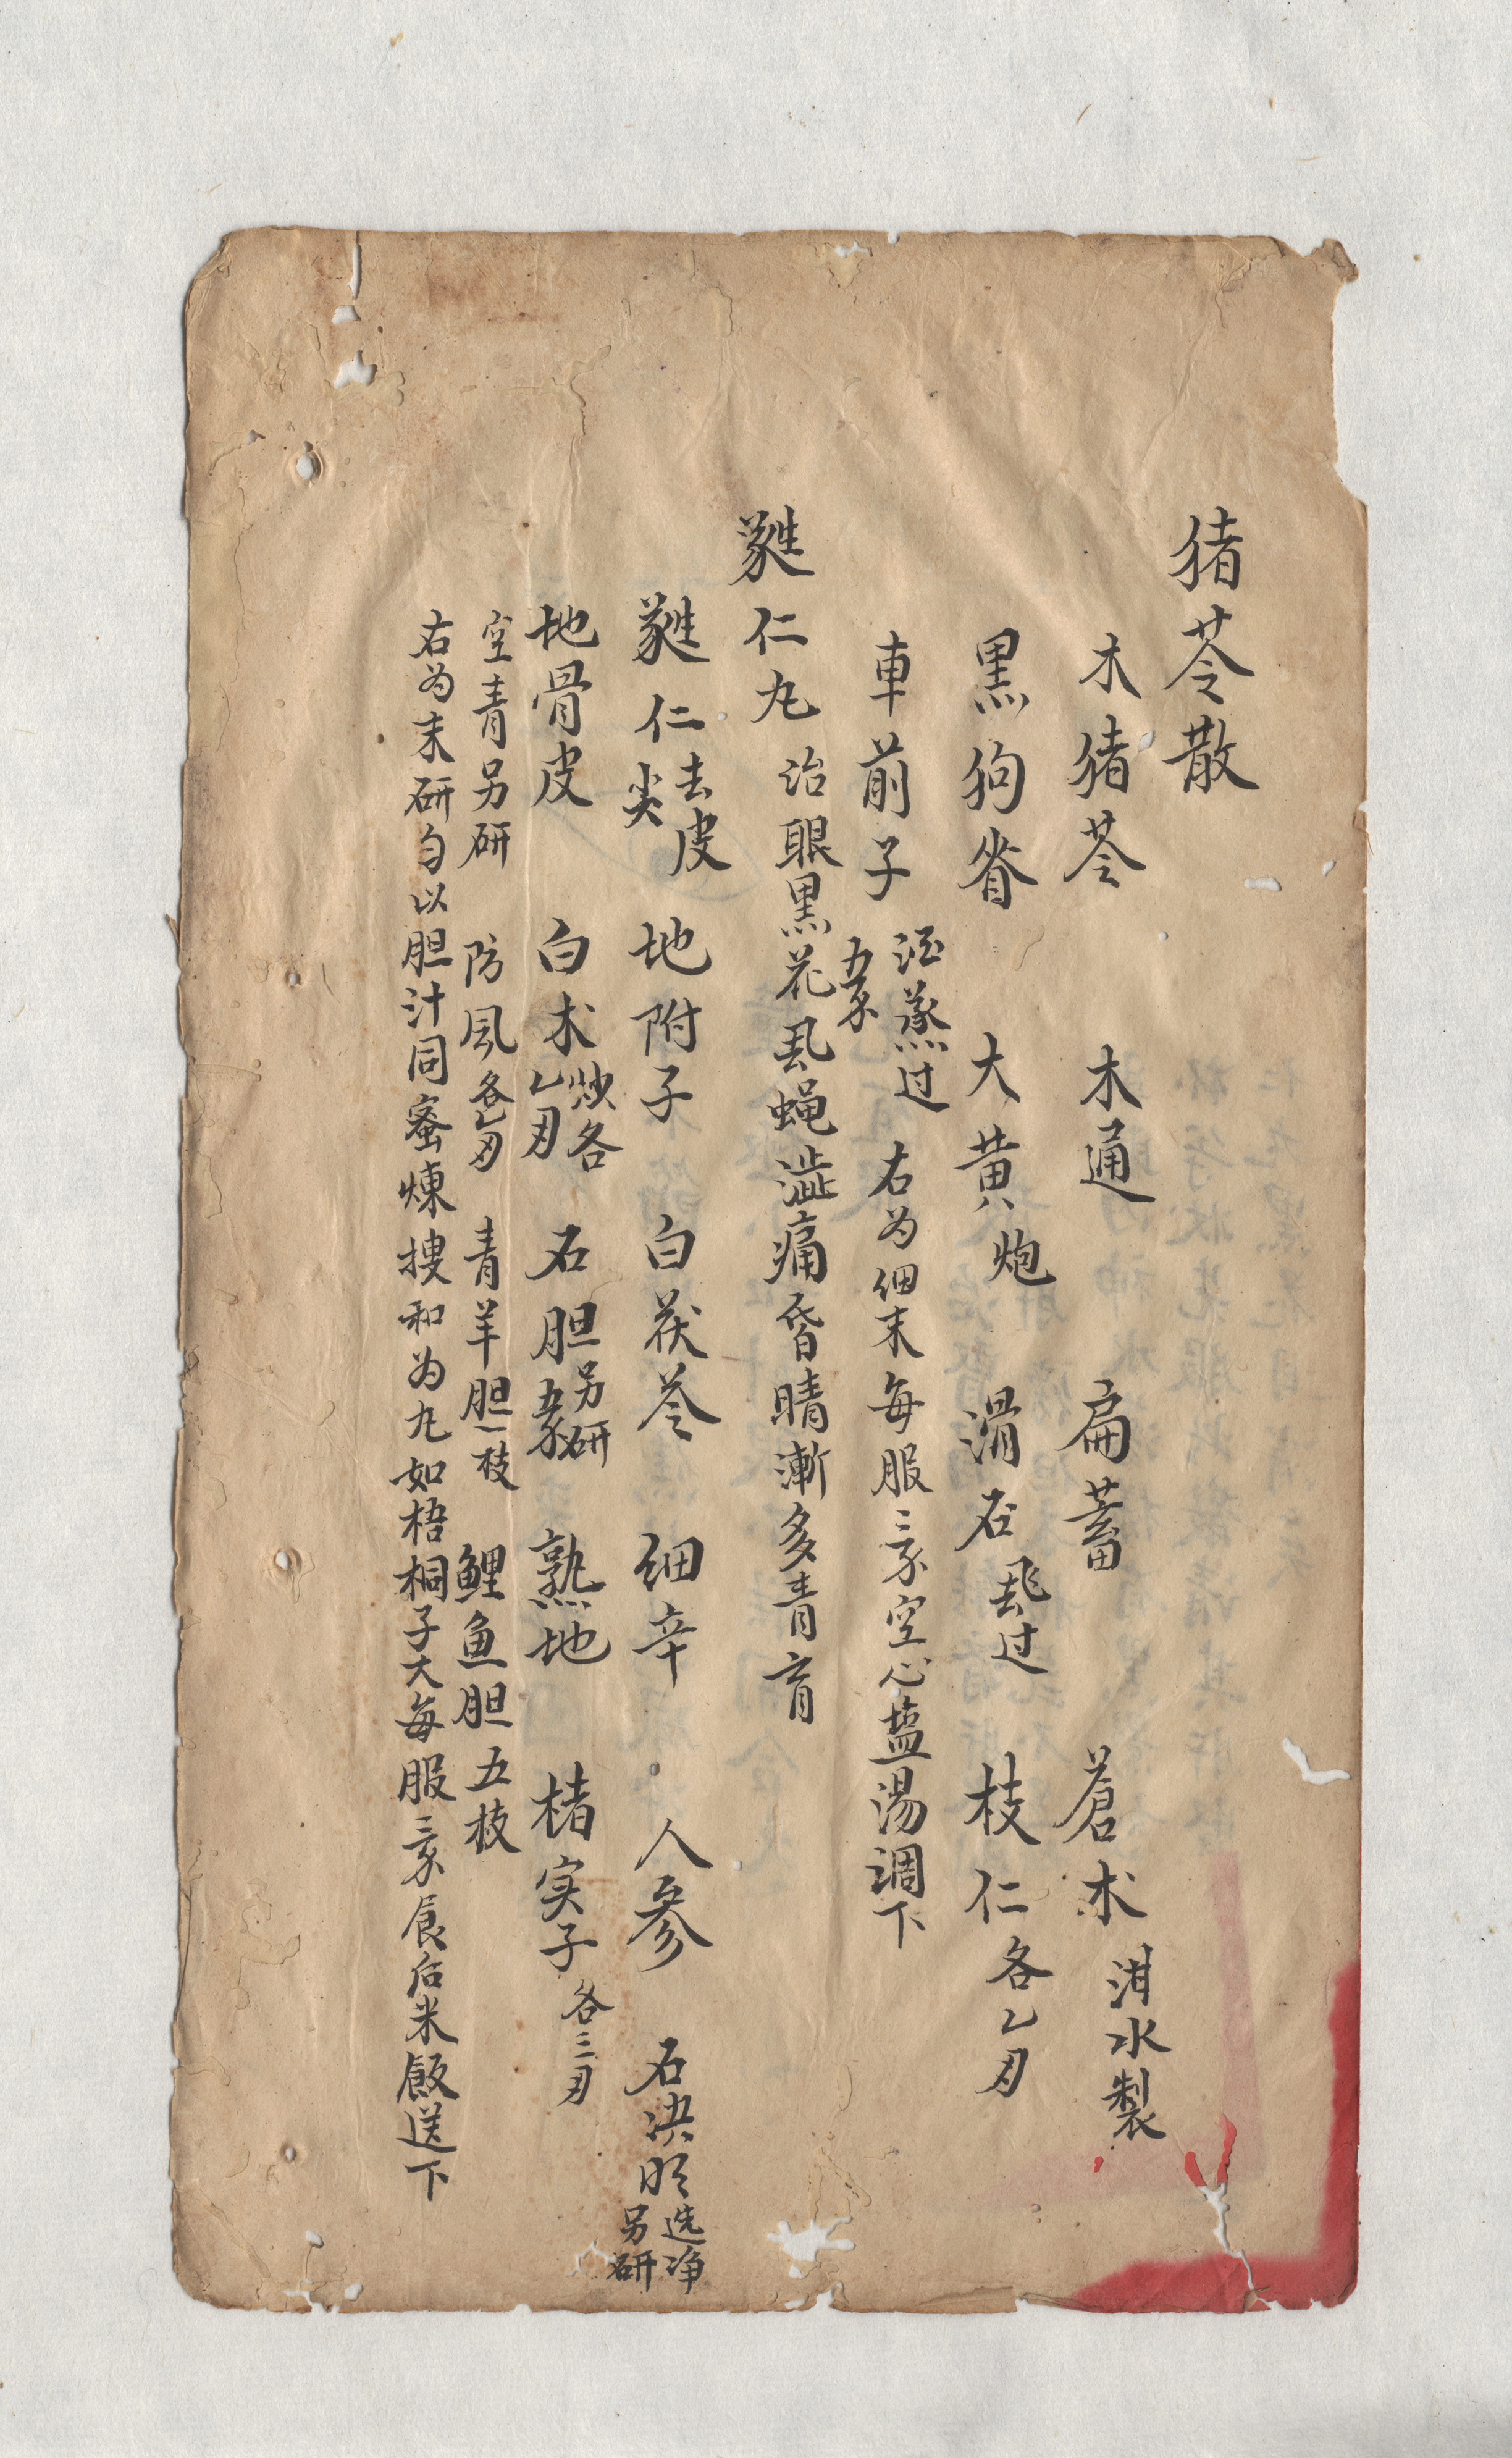 猪苓散
木猪苓 木通 扁蓄 蒼术 泔水製
黑狗脊 大黄炮 滑石飛过 枝仁各乙刄
車前子 酒蒸过 五𱥰 右为细末每服三𱥰空心塩湯調下
蕤仁丸 治眼黒花虱蝇澁痛昏晴漸多青盲
蕤仁去皮尖 地附子 白茯苓 细辛 人参 石决明 选净另研
地骨皮 白术炒各乙刄 石胆另研五𱥰 熟地 楮实子各三刄
空青另研 防风各乙刄 青羊胆一枝 鲤鱼胆五枝
右为末研匀以胆汁同蜜煉搜和为丸如梧桐子大每服三𱥰食后米飯送下